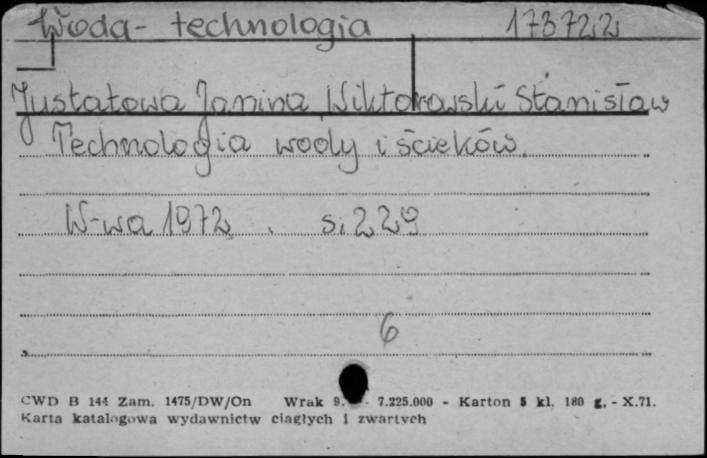 Woda - technologia 173722
Justatowa Janina, Wiktorowski Stanisław
Technologia wody i ścieków.
W-wa 1972. s. 229
6
CWD B 144 Zam. 1475/DW/On Wrak 9. 7.225.000 - Karton 5 kl. 180 g. - X.71.
Karta katalogowa wydawnictw ciągłych i zwartych